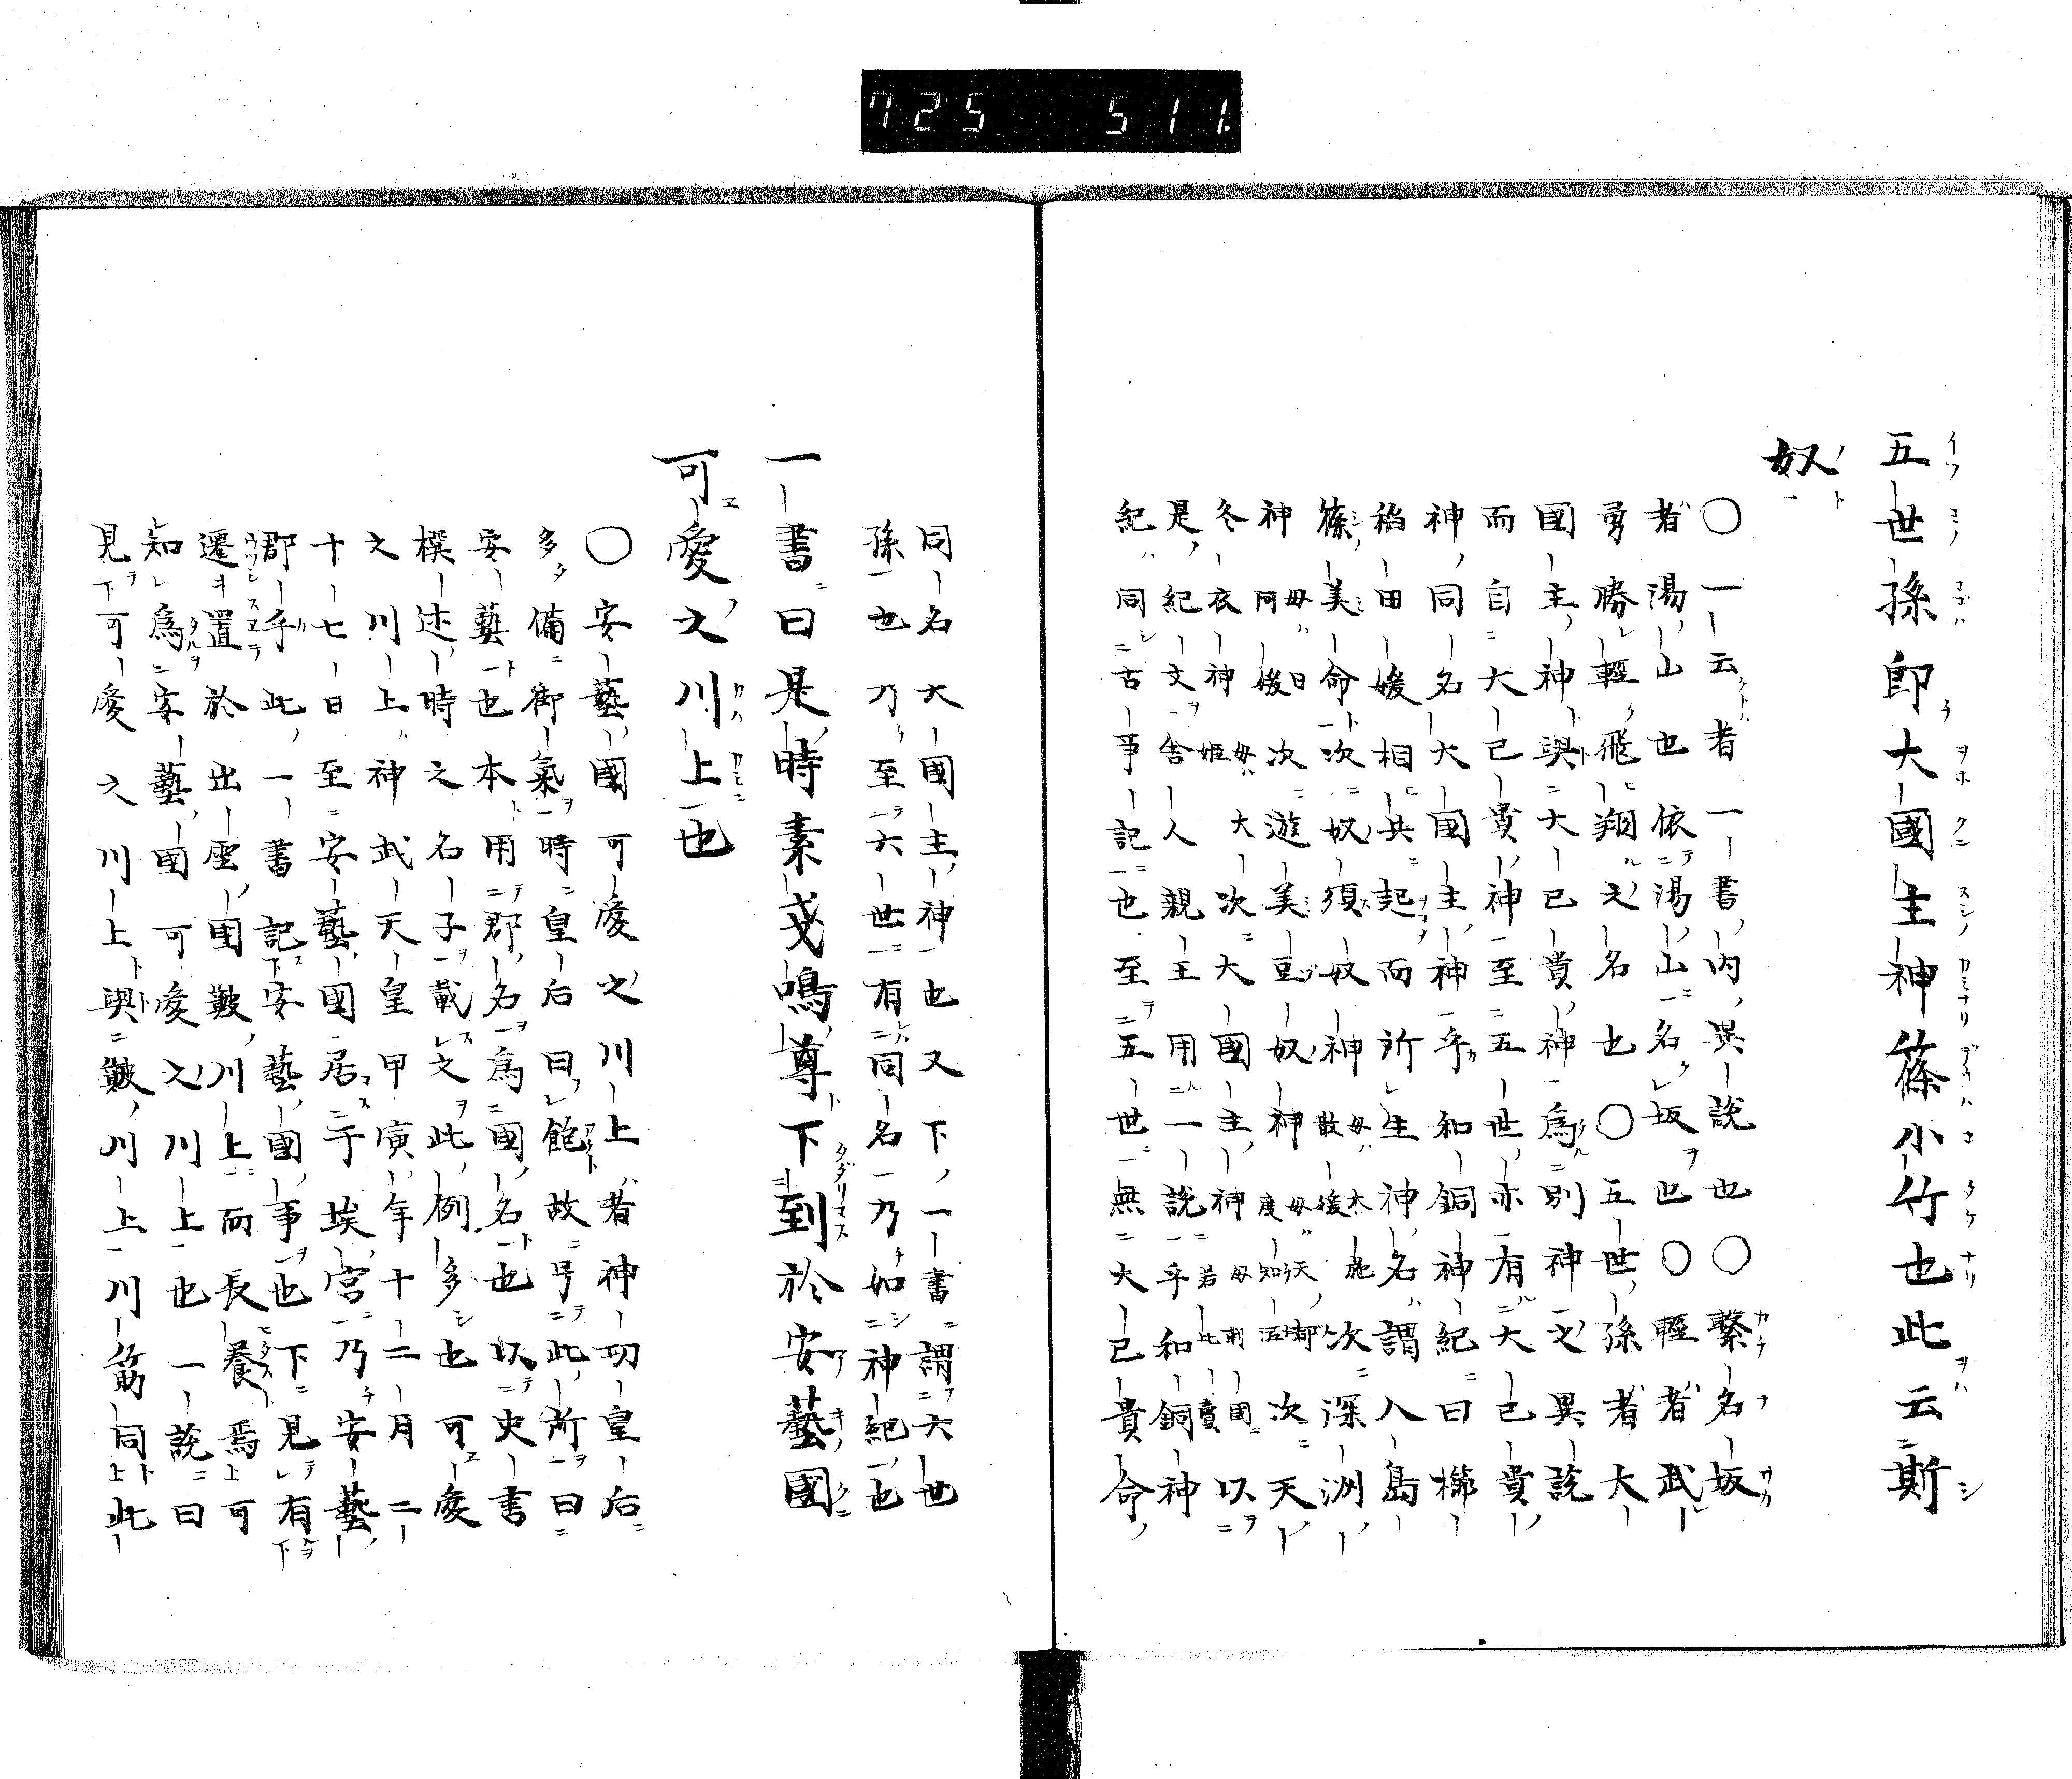 725 511.
五世孫即大國主神篠小竹也此云斯
奴
○一云者一書内異説也○繋名坂
者湯山也依湯山名坂也○輕者武
勇勝輕飛翔之名也○五世孫者大
國主神與大已貴神為別神之異説
而自大已貴神至五世亦有大已貴
神同名大國主神乎和銅神紀曰櫛
稲田媛相共起而所生神名謂八島
篠美命次奴須奴神母ハ大施散媛次深渕
神母ハ日河媛次遊美豆奴神母ハ天都度知泥次天
冬衣神次大國主神母ハ刺國若比賣以
是紀文舎人親王用一説乎和銅神
紀同古事記也至五世無大已貴命
同名大國主神也又下一書謂六世
孫也乃至六世有同名乃如神紀也
一書曰是時素戔嗚尊下到於安藝國
可愛之川上也
○安藝國可愛之川上者神功皇后
多備御氣時皇后曰飽故号此所曰
安藝也本用郡名為國名也以史書
撰述時之名子載文此例多也可愛
之川上神武天皇甲寅年十二月二
十七日至安藝國居于埃宮乃安藝
郡乎此一書記安藝國事也下見有
遷置於出雲國簸川上而長養焉可
知為安藝國可愛之川上也一説曰
見可愛之川上與簸川上川筋同此